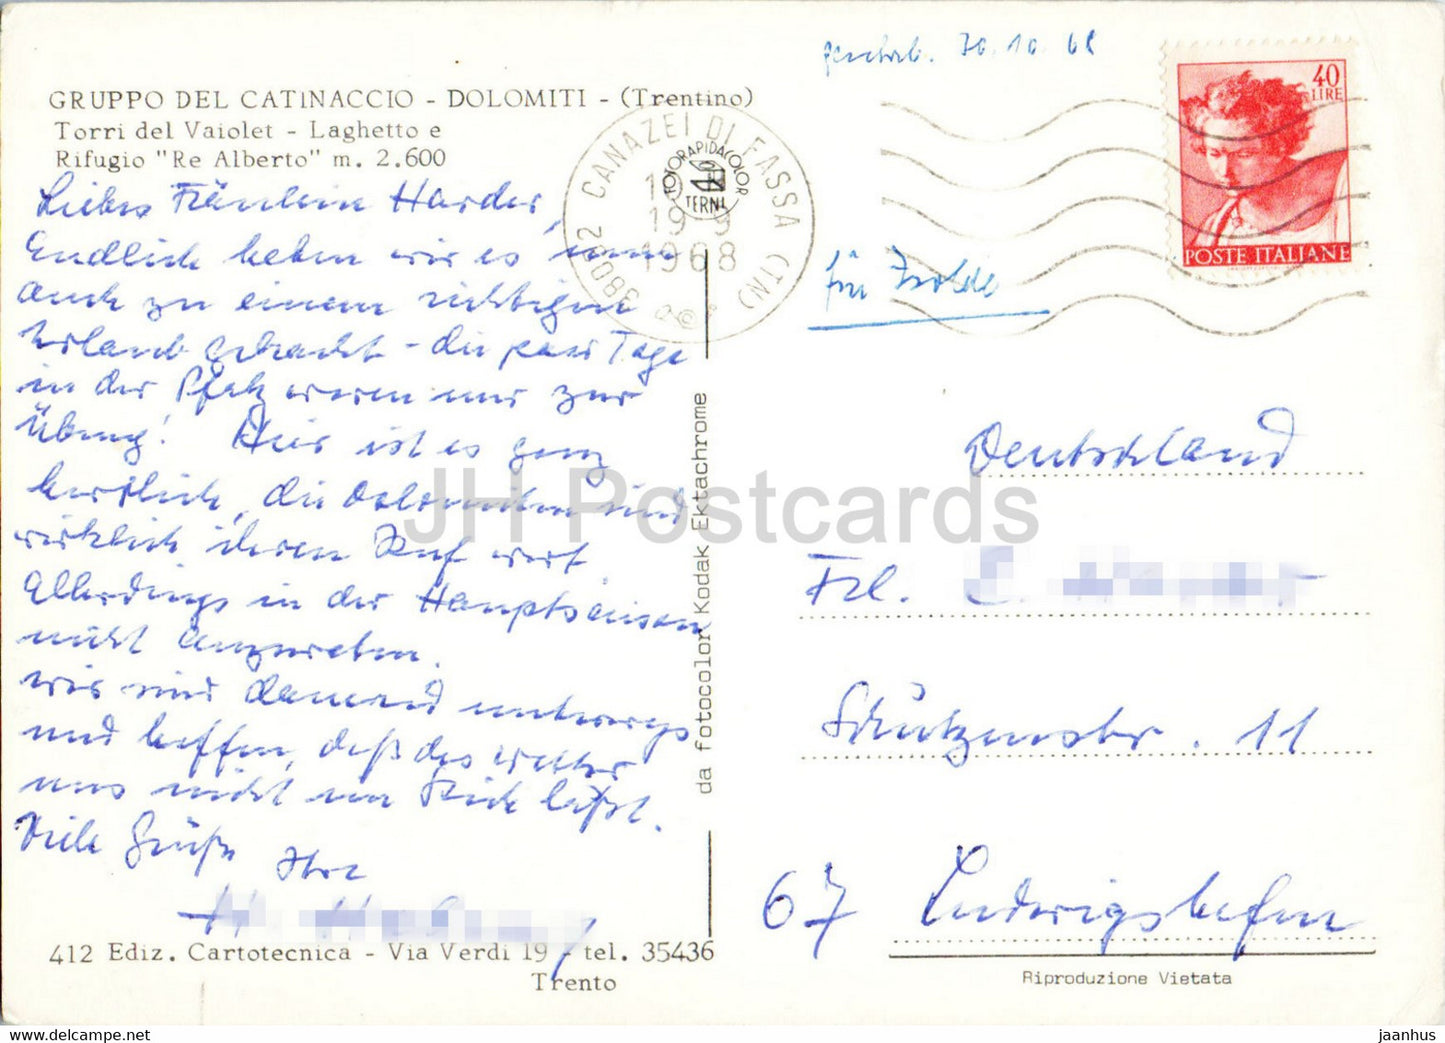 geschrieb. 30.10.68
GRUPPO DEL CATINACCIO - DOLOMITI - (Trentino)
Torri del Vaiolet - Laghetto e
Rifugio "Re Alberto" m. 2.600
40
LIRE
POSTE ITALIANE
38032 CANAZEI DI FASSA (TN)
19 9
1968
FOTORAPIDACOLOR
TERNI
für Isolde
Liebes Fräulein Harder,
Endlich haben wir es nun
auch zu einem richtigen
Urlaub gebracht - die paar Tage
in der Pfalz waren nur zur
Übung! Hier ist es ganz
herrlich, die Dolomiten sind
wirklich ihren Ruf wert.
Allerdings in der Hauptsaison
nicht anzuraten.
Wir sind dauernd unterwegs
und hoffen, daß das Wetter
uns nicht im Stich läßt.
Viele Grüße Ihre
Deutschland
Frl.
Schützenstr. 11
67 Ludwigshafen
da fotocolor Kodak Ektachrome
412 Ediz. Cartotecnica - Via Verdi 19 - tel. 35436
Trento
Riproduzione Vietata
JH Postcards
www.delcampe.net
jaanhus